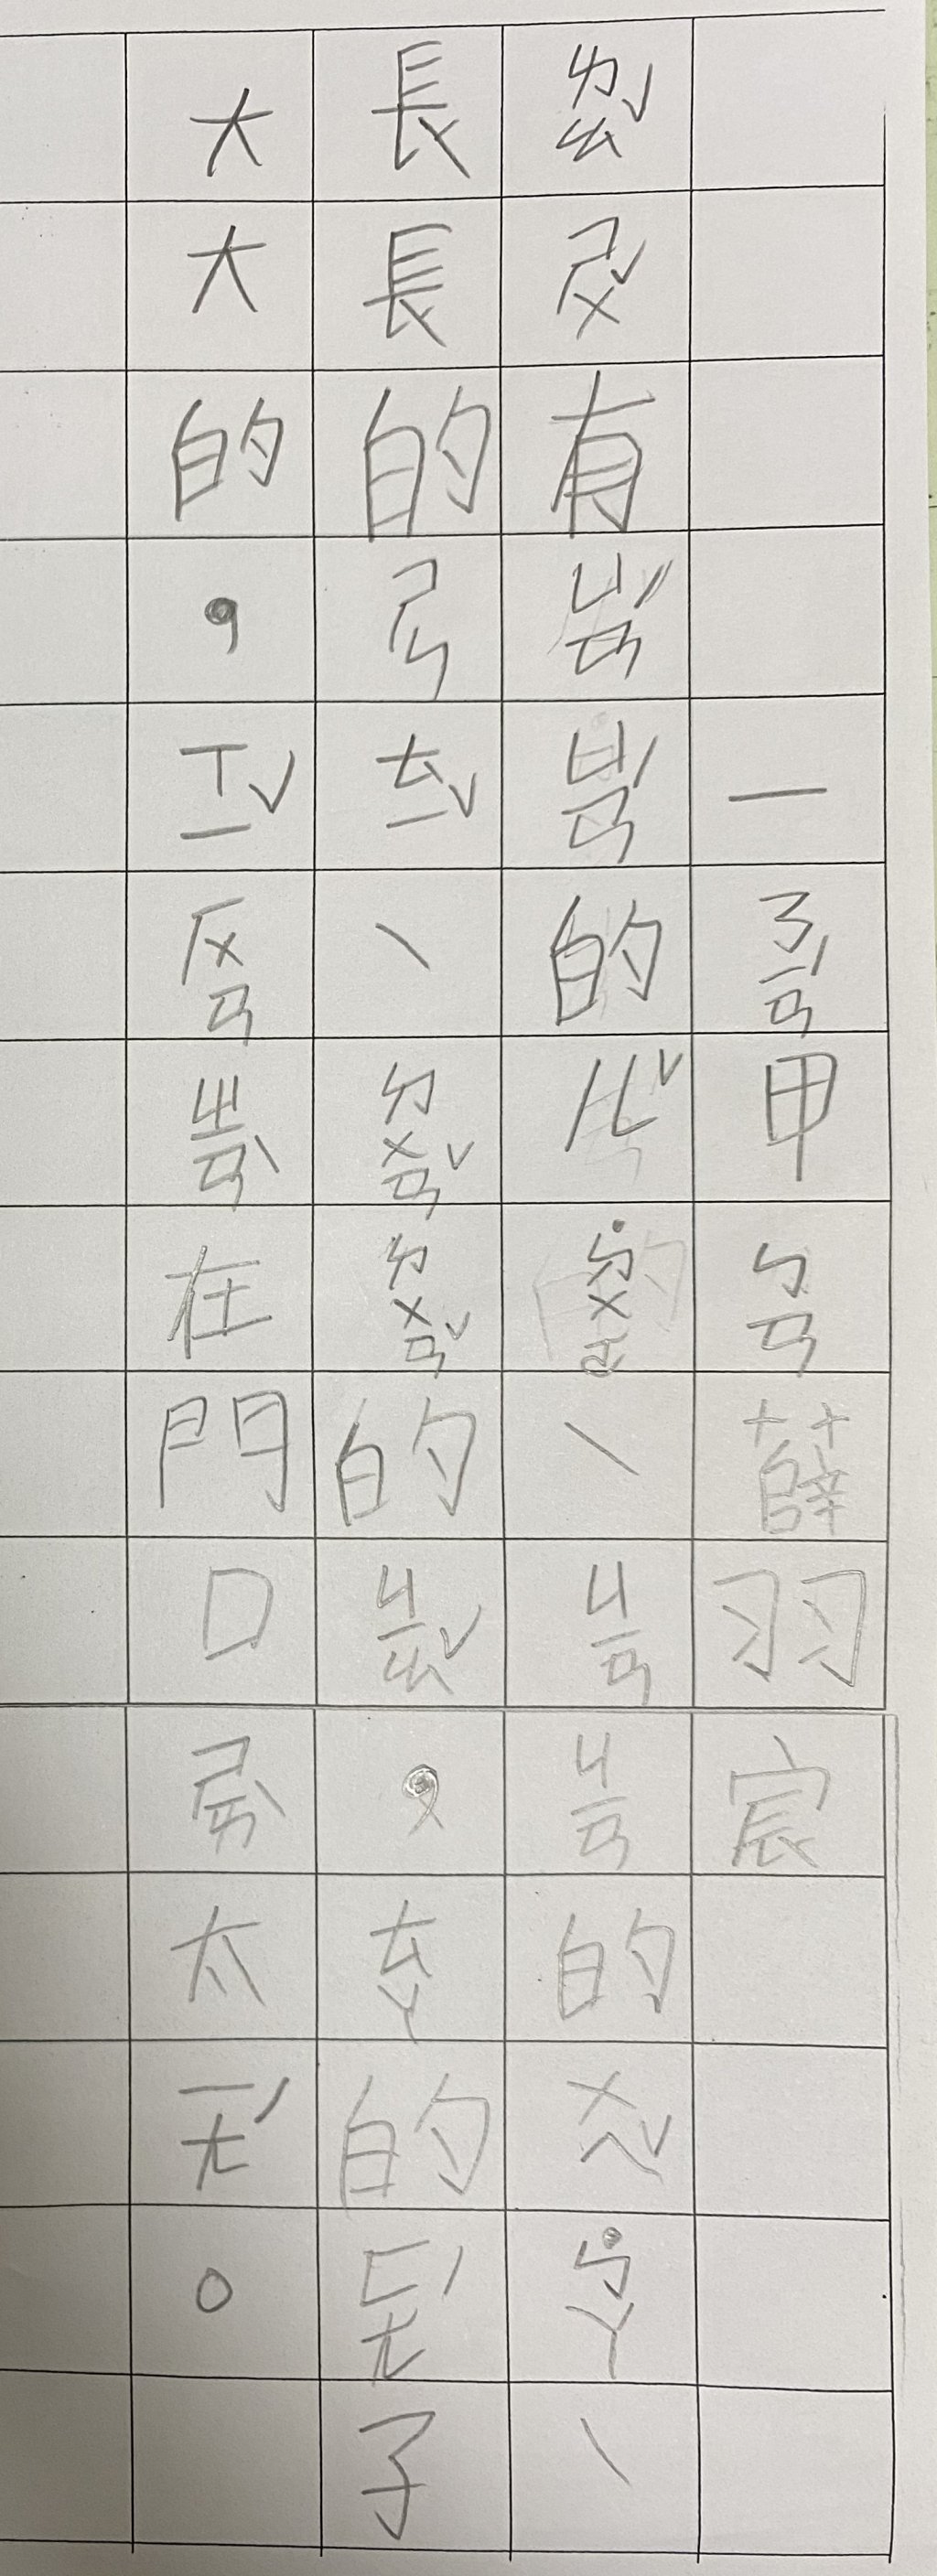 一ㄋㄧㄢˊ甲ㄅㄢ薛羽宸
ㄌㄠˇㄕㄨˇ有ㄩㄢˊㄩㄢˊ的ㄦˇㄉㄨㄛ˙、ㄐㄧㄢㄐㄧㄢ的ㄨㄟˇㄅㄚ˙、
長長的ㄕㄣㄊㄧˇ、ㄉㄨㄢˇㄉㄨㄢˇ的ㄐㄧㄠˇ，ㄊㄚ的ㄈㄤˊ子
大大的，ㄒㄧˇㄏㄨㄢㄓㄢˋ在門口ㄕㄞˋ太ㄧㄤˊ。